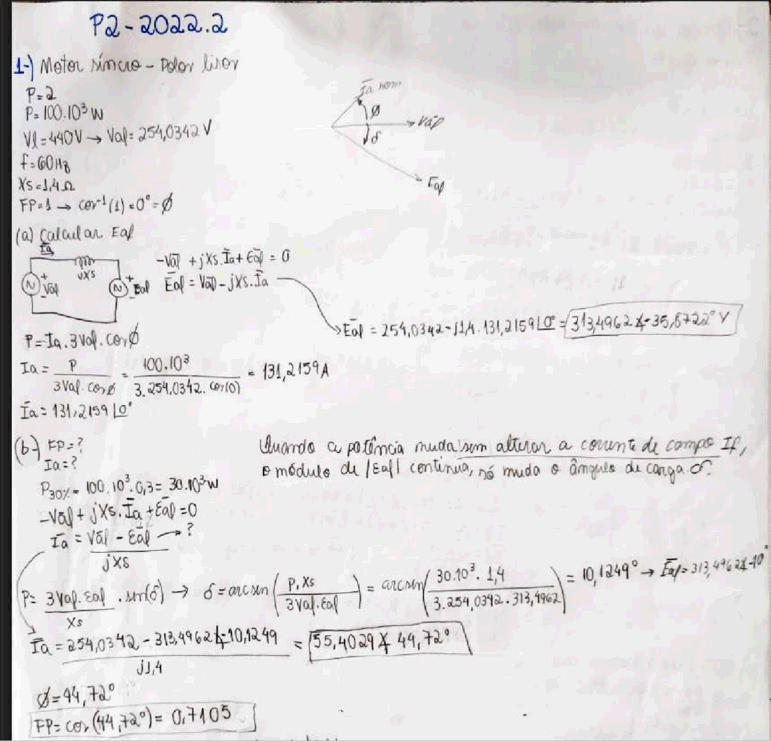 P2-2022.2
1-) Motor síncro - Polos lisos
P=2
P=100.10³ W
Vl=440V → Vaf=254,0342 V
f=60Hz
Xs=1,4 Ω
FP=1 → cos⁻¹(1)=0°=ϕ
Ia nom
ϕ
Vaf
δ
Eaf
(a) Calcular Eaf
Ia
jXs
N + Vaf
N + Eaf
-Vaf + jXs.Ia + Eaf = 0
Eaf = Vaf - jXs.Ia
→ Eaf = 254,0342 - j1,4.131,2159∠0° = 313,4962∠-35,8722° V
P = Ia.3Vaf.cosϕ
Ia = P / 3Vaf.cosϕ = 100.10³ / 3.254,0342.cos(0) = 131,2159A
Ia = 131,2159∠0°
(b-) FP=?
Ia=?
Quando a potência muda sem alterar a corrente de campo If,
o módulo de |Eaf| continua, só muda o ângulo de carga δ.
P30% = 100.10³.0,3 = 30.10³W
-Vaf + jXs.Ia + Eaf = 0
Ia = Vaf - Eaf → ? / jXs
P = 3Vaf.Eaf / Xs . sen(δ) → δ = arcsen(P.Xs / 3Vaf.Eaf) = arcsen(30.10³.1,4 / 3.254,0342.313,4962) = 10,1249° → Eaf = 313,4962∠-10°
Ia = 254,0342 - 313,4962∠-10,1249 / j1,4 = 55,4029∠44,72°
ϕ=44,72°
FP = cos(44,72°) = 0,7105